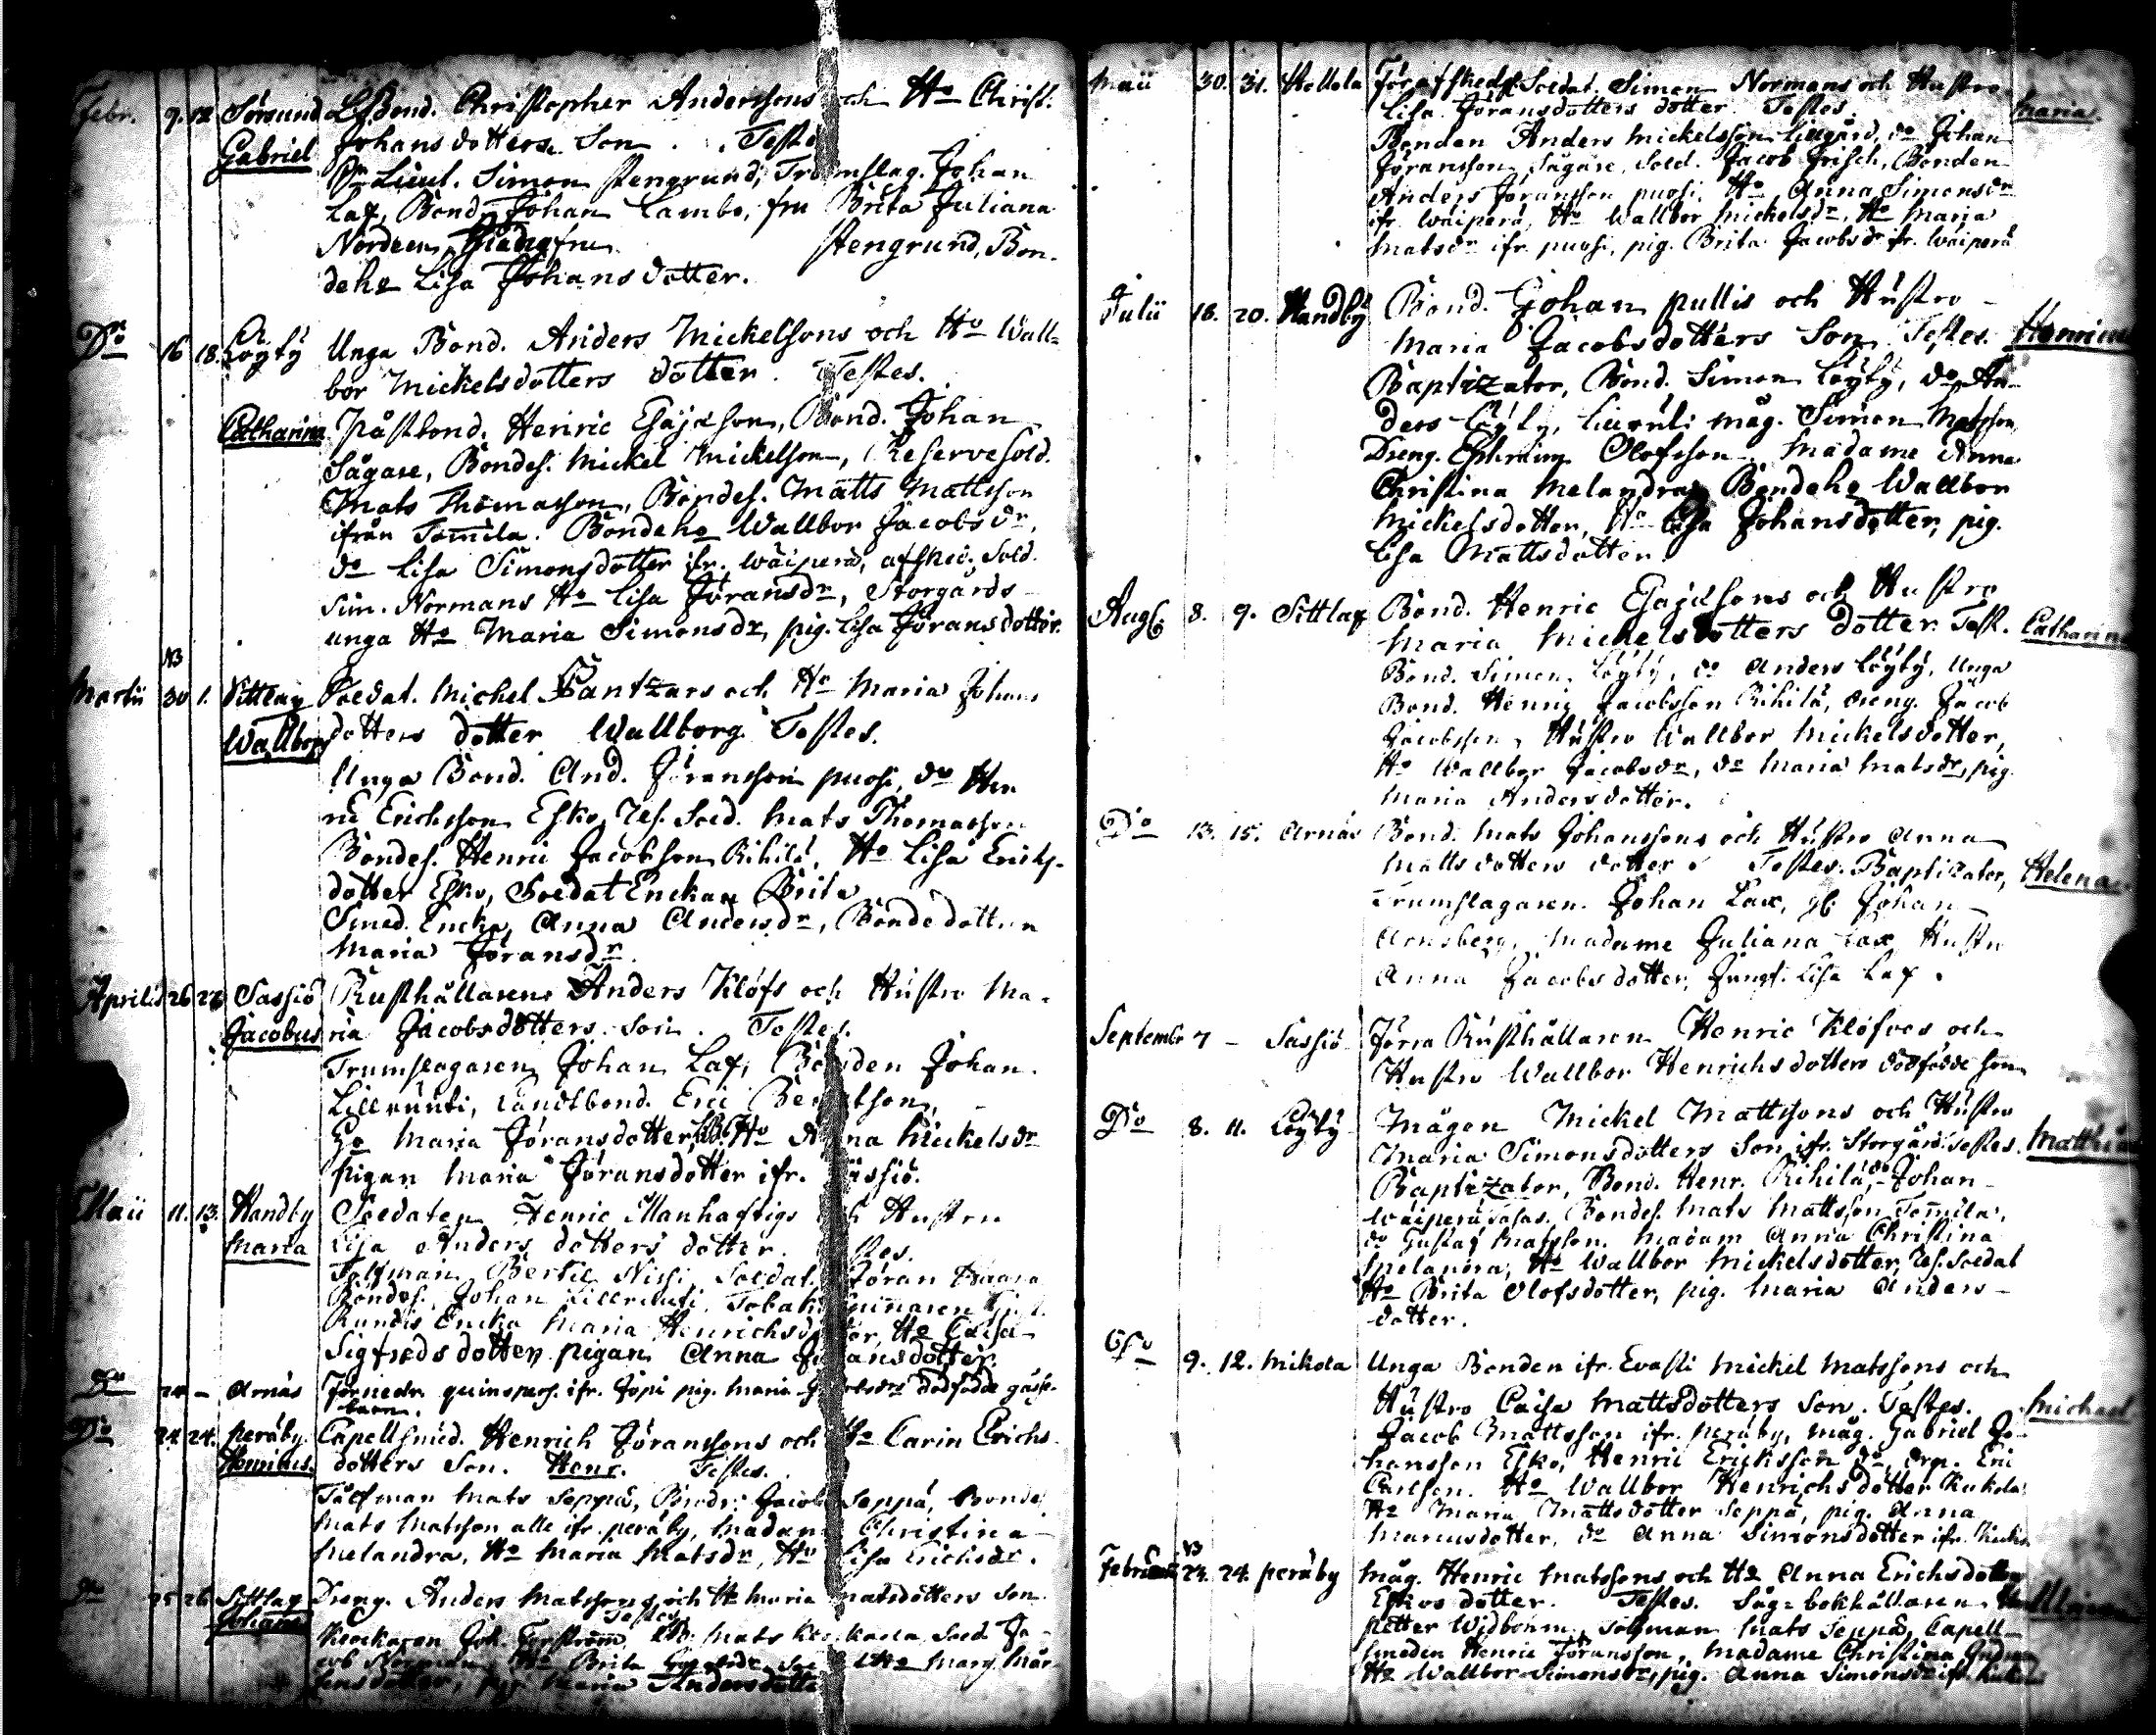 Febr. 9. 12 Sörsund LBond. Christopher Anderssons och Ho Christ.
Gabriel Johans dotters Son. Teste
Lieut. Simon Stengrund, Trumslag. Johan
Lax, Bond. Johan Lambo, fru Brita Juliana
Nordeen, Stengrund, Bon-
deho Lisa Johansdotter.
Do 16 18. Löyty Unga Bond. Anders Mickelsons och Ho Wall-
bor Mickelsdotters dotter. Testes.
Catharina Påstbond. Henric Esajæson, Bond. Johan
Sågare, Bondes. Mickel Mickelson, Reservesold.
Mats Thomasson, Bondes. Matts Mattsson
ifrån Tomila. Bondeho Wallbor Jacobsdr,
do Lisa Simonsdotter ifr. Wäiperä, afsked. Sold.
Sim. Normans Ho Lisa Jöransdr, Storgårds
unga Ho Maria Simonsdr, pig. Lisa Jöransdotter.
Martii 30 1. Sittlax Soldat. Michel Santzars och Ho Maria Johans
Wallborg dotters dotter Wallborg. Testes.
Unga Bond. And. Jöransson puosi, do Hen
ric Erichsson Esko, Res. Sold. Mats Thomasson
Bondes. Henric Jacobsson Rihilä, Ho Lisa Erichs-
dotter Esko, Soldat Enckan Brita
Smed. Encka, Anna Andersdr, Bondedottern
Maria Jöransdr.
Aprilis 26 27 Sassiö Rusthållarens Anders Klöfs och Hustro Ma-
Jacobus ria Jacobsdotters Son. Testes.
Trumslagaren Johan Lax, Bonden Johan
Lillrunti, Landtbond. Eric
Ho Maria Jöransdotter, Ho Anna Mickelsdr
pigan Maria Jöransdotter ifr. Sassiö.
Maii 11. 13. Handby Soldaten Henric Manhaftigs och Hustru
Maria Lisa Anders dotters dotter. Testes.
Tolfman Bertil Nissi, Soldat. Jöran
Bondes. Johan Lillrunti, Tobaks
Encka Maria Henrichsdotter, Ho Caisa
Sigfredsdotter, pigan Anna Jöransdotter.
Do 24 - Arnäs ifr. Jopi pig. Maria dödfödde
barn.
Do 24. 24. peräby Capellsmed. Henrich Jöranssons och Ho Carin Erichs
Henricus. dotters Son. Henr. Testes.
Tolfman Mats Seppä, Bond. Jacob Seppä, Bondes.
Mats Matsson alle ifr. peräby, Madam Christina
Melandra, Ho Maria Matsdr, Ho Lisa Erichsdr.
Do 25 26 Sittlax Dreng. Anders Matssons och Ho Maria Matsdotters Son
Johannes Testes.
Klockaren Joh. Mats Sold. Ja-
cob Norrman, Ho Brita Ho Mar
tensdotter, pig. Maria Andersdotter
Maii 30. 31. Hottola afsked. Soldat. Simon Normans och Hustro
Lisa Jöransdotters dotter. Testes. Maria.
Bonden Anders Mickelsson Lillgård, do Johan
Jöransson Sågare, Sold. Jacob Frisch, Bonden
Anders Jöransson puosi, Ho Anna Simonsdr
ifr. Wäiperä, Ho Wallbor Mickelsdr, Ho Maria
Matsdr ifr. puosi, pig. Brita Jacobsdr ifr. Wäiperä
Julii 18. 20. Handby Bond. Johan pullis och Hustro
Maria Jacobsdotters Son. Testes. Henricus
Baptizator, Bond. Simon Löyty, do An-
ders Löyty, måg. Simon Matsson
Dreng. Ephraim Olofsson. Madame Anna
Christina Melandra, Bondeho Wallbor
Mickelsdotter, Ho Lisa Johansdotter, pig.
Lisa Mattsdotter.
Aug. 8. 9. Sittlax Bond. Henric Esajæsons och Hustro
Maria Mickelsdotters dotter. Test. Catharina
Bond. Simon Löyty, do Anders Löyty, Unga
Bond. Henric Jacobsson Rihilä, dreng. Jacob
Jacobsson, Hustro Wallbor Mickelsdotter,
Ho Wallbor Jacobsdr, do Maria Matsdr, pig.
Maria Andersdotter.
Do 13. 15. Arnäs Bond. Mats Johanssons och Hustro Anna
Mattsdotters dotter. Testes. Baptizator, Helena
Trumslagaren Johan Lax, Johan
Arnsberg, Madame Juliana Lax, Hustro
Anna Jacobsdotter, Jungf. Lisa Lax.
Septembr 7 - Sassiö Förra Rusthållaren Henric Klöfvos och
Hustro Wallbor Henrichsdotters dödfödde Son
Do 8. 11. Löyty Mågen Mickel Mattssons och Hustro
Maria Simonsdotters Son ifr. Storgård. Testes. Matthias
Baptizator, Bond. Henr. Rihilä, do Johan
Wäiperä Bondes. Mats Mattsson Tomila,
do Gustaf Matsson. Madam Anna Christina
Melandra, Ho Wallbor Mickelsdotter, Res. Soldat
Ho Brita Olofsdotter, pig. Maria Anders-
dotter.
Do 9. 12. Mikola Unga Bonden ifr. Evasti Mickel Matssons och
Hustro Caisa Mattsdotters Son. Testes. Michael
Jacob Mattsson ifr. peräby, måg. Gabriel Jo-
hansson Esko, Henric Ericksson do, drg. Eric
Carlson. Ho Wallbor Henrichsdotter Kukola
Ho Maria Mattsdotter Seppä, pig. Anna
Marcusdotter, do Anna Simonsdotter ifr.
Februarii 23. 24. peräby måg. Henric Matssons och Ho Anna Erichsdotter
Eskos dotter. Testes. Såg-bokhållaren
petter Widbom, Tolfman Mats Seppä, Capell-
smeden Henric Jöransson, Madame Christina
Ho Wallbor Simonsdr, pig. Anna Simonsdr ifr.